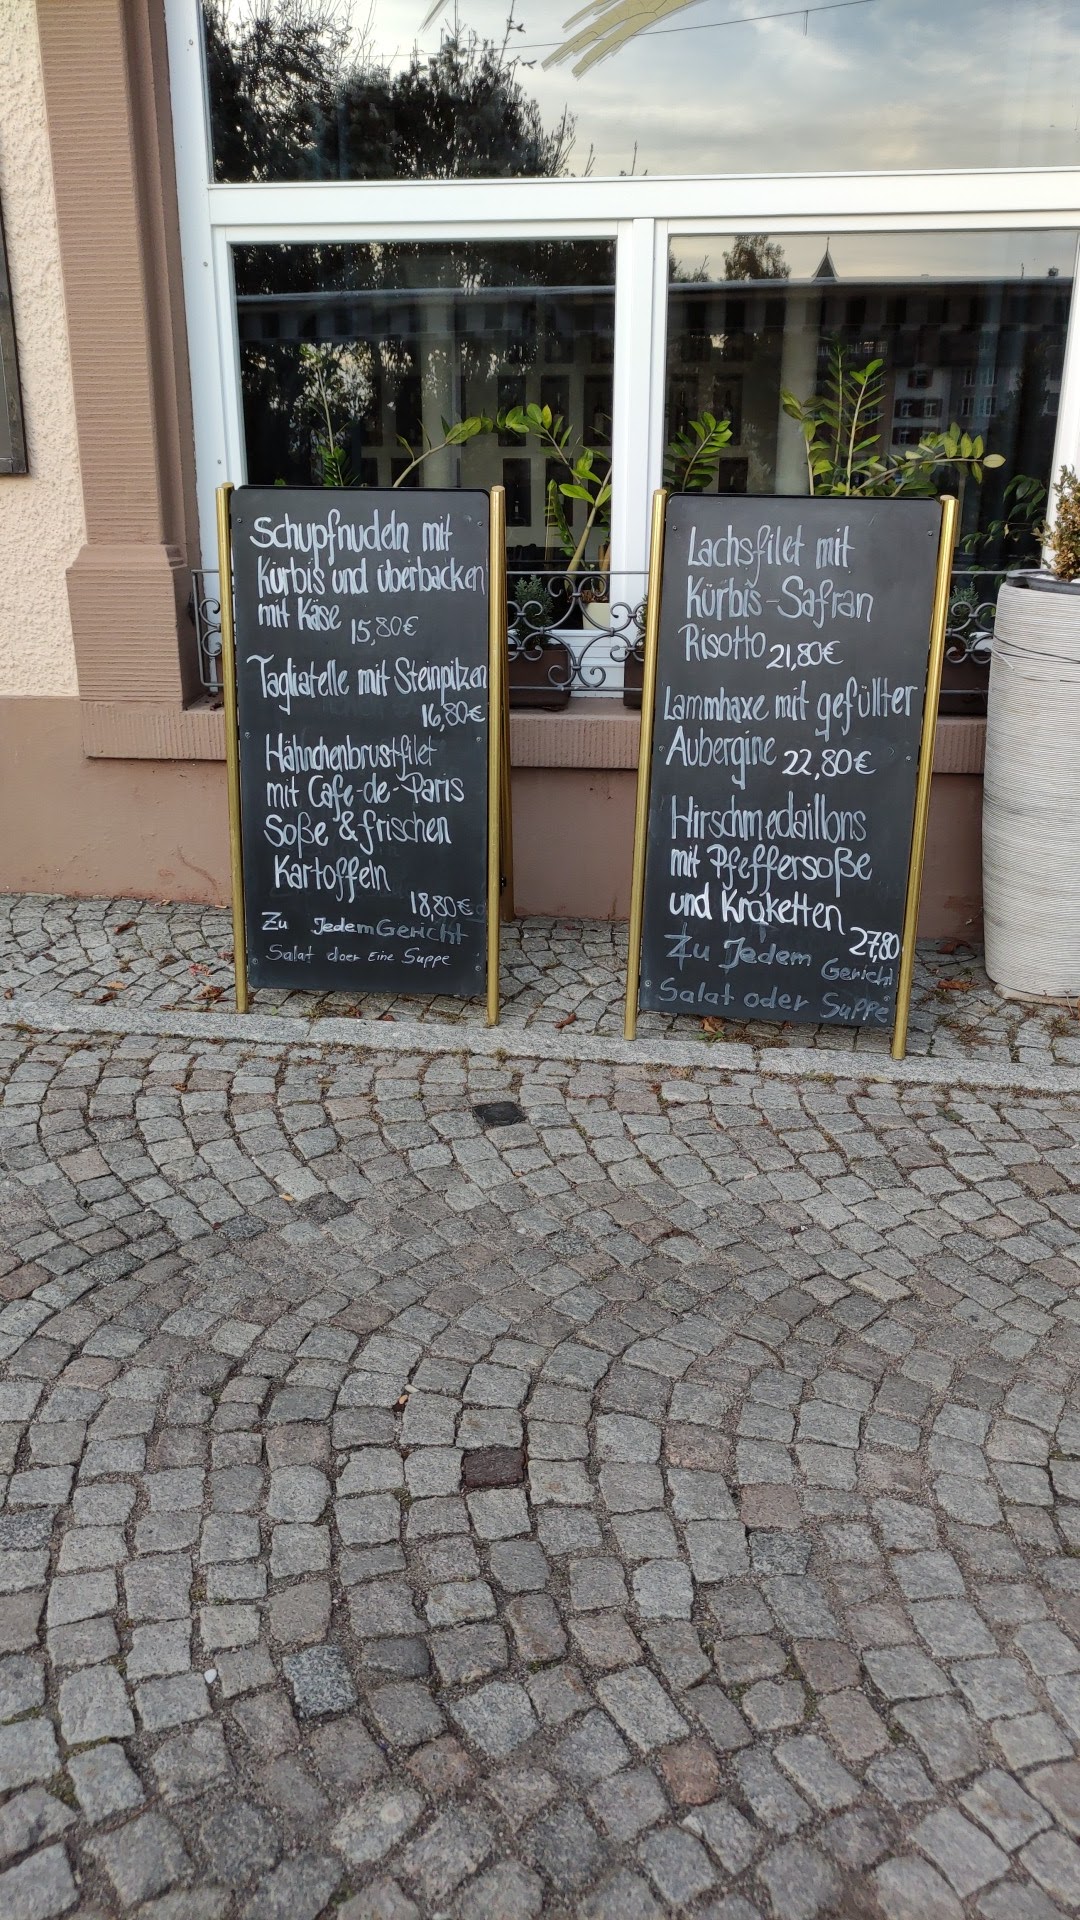 Schupfnudeln mit
Kürbis und überbacken
mit Käse 15,80€
Tagliatelle mit Steinpilzen
16,80€
Hähnchenbrustfilet
mit Cafe-de-Paris
Soße & frischen
Kartoffeln
18,80€
Zu Jedem Gericht
Salat doer Eine Suppe
Lachsfilet mit
Kürbis-Safran
Risotto 21,80€
Lammhaxe mit gefüllter
Aubergine 22,80€
Hirschmedaillons
mit Pfeffersoße
und Kraketten
27,80
Zu Jedem Gericht
Salat oder Suppe